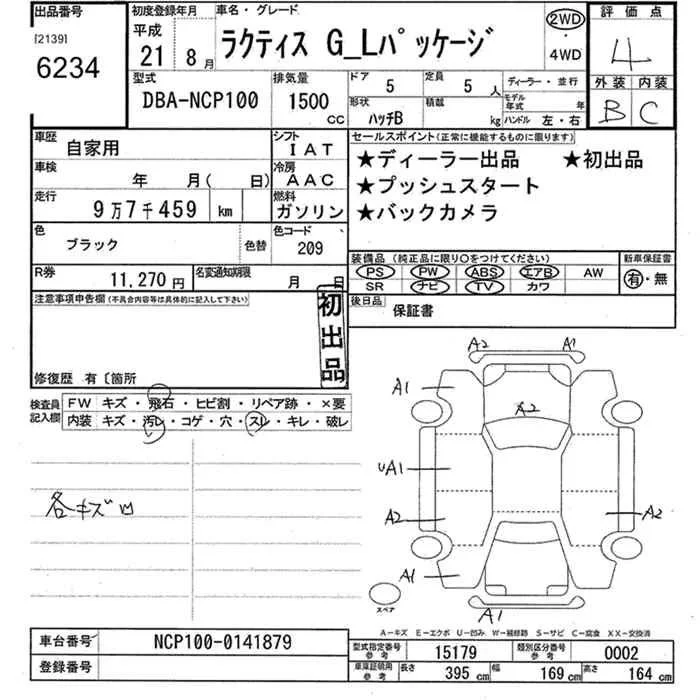 出品番号
[2139]
6234
初度登録年月
平成
21年 8月
車名・グレード
ラクティス G_Lパッケージ
2WD
・
4WD
評価点
4
外装 内装
B C
型式
DBA-NCP100
排気量
1500 CC
ドア 5
定員 5人
形状 ハッチB
積載 kg
ディーラー・並行
モデル年式 年
ハンドル 左・右
車歴 自家用
シフト IAT
車検 年 月( 日)
冷房 AAC
走行 9万7千459 km
燃料 ガソリン
色 ブラック 色替
色コード 209
R券 11,270円
名変通知期限 月 日
セールスポイント(正常に機能するものに限ります)
★ディーラー出品 ★初出品
★プッシュスタート
★バックカメラ
装備品 (純正品に限り○をつけてください)
新車保証書
PS PW ABS エアB AW
SR ナビ TV カワ
有・無
後日品 保証書
注意事項申告欄(不具合内容等は具体的に記入して下さい)
初出品
修復歴 有〔箇所
検査員記入欄
FW キズ・飛石・ヒビ割・リペア跡・×要
内装 キズ・汚レ・コゲ・穴・スレ・キレ・破レ
各キズ凹
A2 A1
A1
A2
UA1
A2
A2
A1
A1
スペア
A-キズ E-エクボ U-凹み W-補修跡 S-サビ C-腐食 XX-交換済
車台番号 NCP100-0141879
登録番号
型式指定番号 参考 15179
類別区分番号 参考 0002
車庫証明用 参考 長さ 395 cm 幅 169 cm 高さ 164 cm